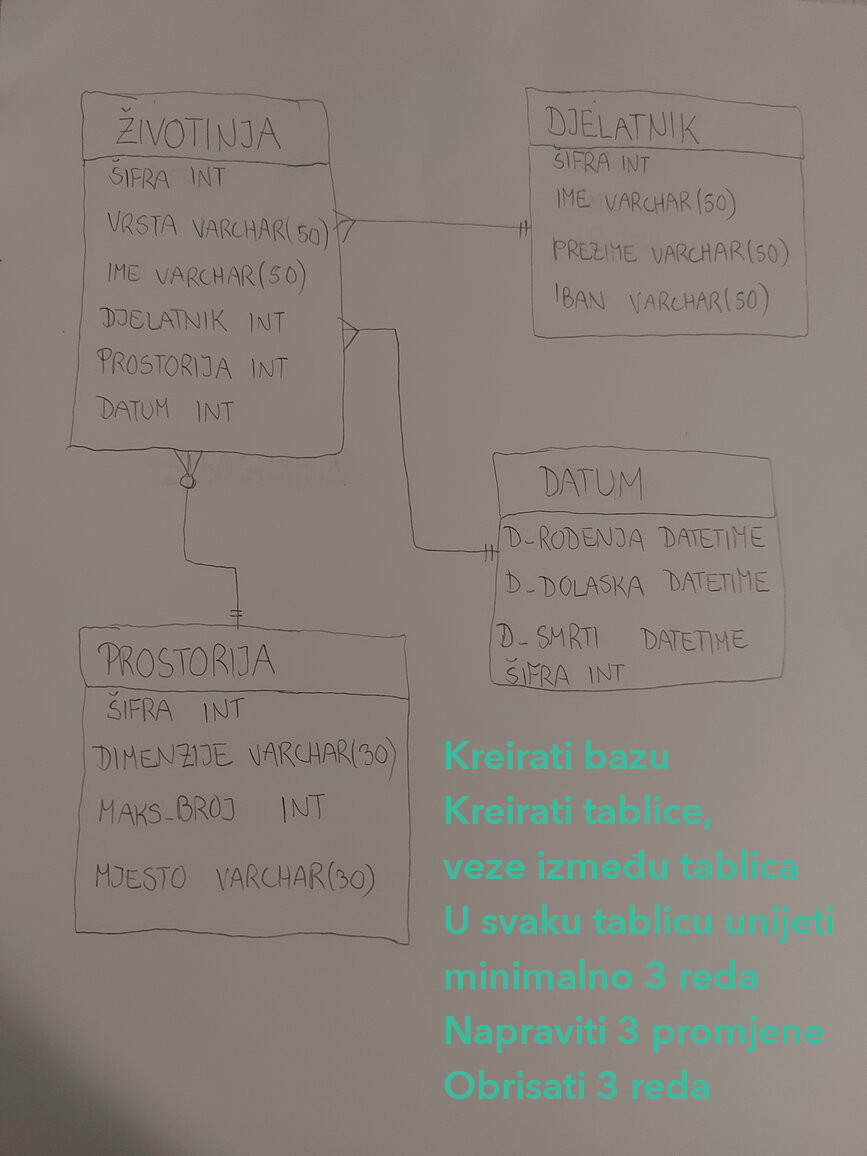 ŽIVOTINJA
ŠIFRA INT
VRSTA VARCHAR(50)
IME VARCHAR(50)
DJELATNIK INT
PROSTORIJA INT
DATUM INT
DJELATNIK
ŠIFRA INT
IME VARCHAR(50)
PREZIME VARCHAR(50)
IBAN VARCHAR(50)
DATUM
D_ROĐENJA DATETIME
D_DOLASKA DATETIME
D_SMRTI DATETIME
ŠIFRA INT
PROSTORIJA
ŠIFRA INT
DIMENZIJE VARCHAR(30)
MAKS_BROJ INT
MJESTO VARCHAR(30)
Kreirati bazu
Kreirati tablice,
veze između tablica
U svaku tablicu unijeti
minimalno 3 reda
Napraviti 3 promjene
Obrisati 3 reda